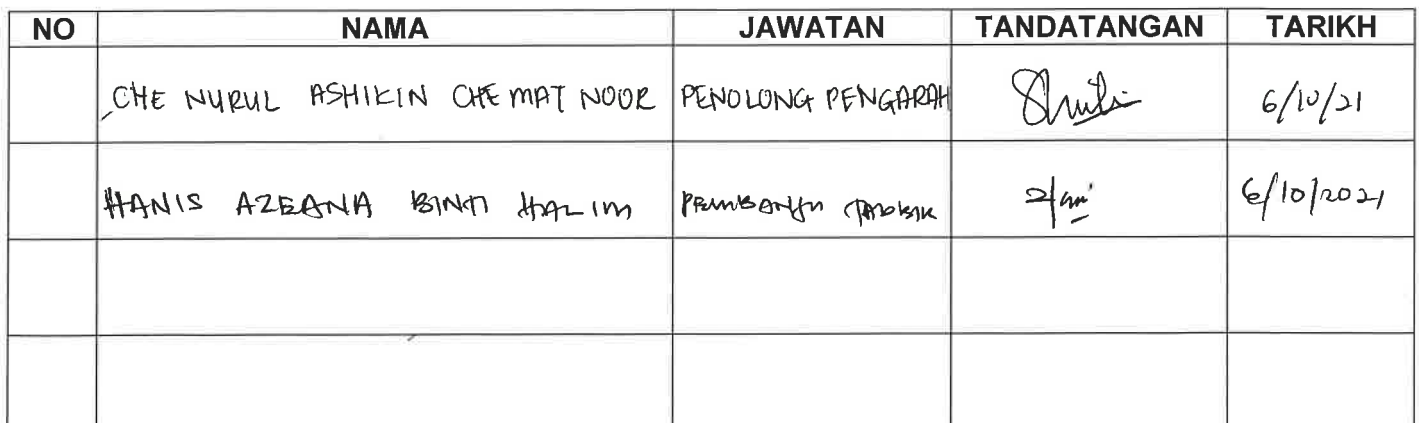 NO NAMA JAWATAN TANDATANGAN TARIKH
CHE NURUL ASHIKIN CHE MAT NOOR PENOLONG PENGARAH 6/10/21
HANIS AZEANA BINTI HALIM PEMBANTU TADBIR 6/10/2021